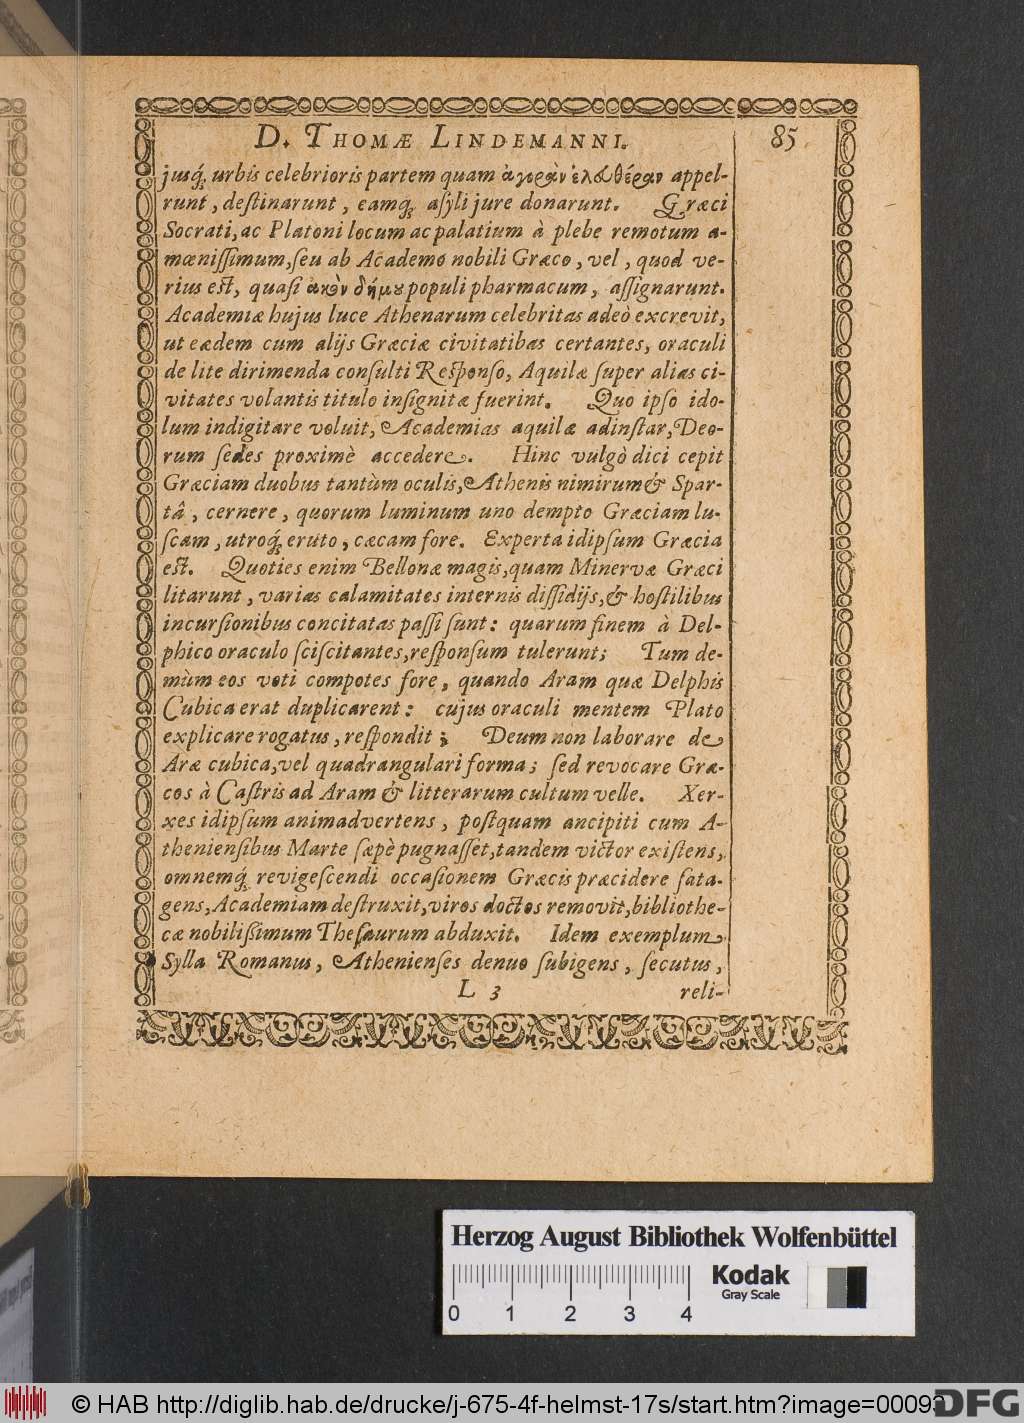 D. THOMÆ LINDEMANNI. 85
jusq́; urbis celebrioris partem quam ἀγορὰν ἐλευθέραν appel-
runt, destinarunt, eamq́; asyli jure donarunt. Græci
Socrati, ac Platoni locum ac palatium à plebe remotum a-
mœnissimum, seu ab Academo nobili Græco, vel, quod ve-
rius est, quasi ἀκὸν δήμου populi pharmacum, assignarunt.
Academiæ hujus luce Athenarum celebritas adeò excrevit,
ut eædem cum alijs Græciæ civitatibas certantes, oraculi
de lite dirimenda consulti Responso, Aquilæ super alias ci-
vitates volantis titulo insignitæ fuerint. Quo ipso ido-
lum indigitare voluit, Academias aquilæ adinstar, Deo-
rum sedes proximè accedere. Hinc vulgò dici cepit
Græciam duobus tantùm oculis, Athenis nimirum & Spar-
tâ, cernere, quorum luminum uno dempto Græciam lu-
scam, utroq́; eruto, cæcam fore. Experta idipsum Græcia
est. Quoties enim Bellonæ magis, quam Minervæ Græci
litarunt, varias calamitates internis dissidijs, & hostilibus
incursionibus concitatas passi sunt: quarum finem à Del-
phico oraculo sciscitantes, responsum tulerunt; Tum de-
mùm eos voti compotes fore, quando Aram quæ Delphis
Cubica erat duplicarent: cujus oraculi mentem Plato
explicare rogatus, respondit; Deum non laborare de
Aræ cubica, vel quadrangulari forma; sed revocare Græ-
cos à Castris ad Aram & litterarum cultum velle. Xer-
xes idipsum animadvertens, postquam ancipiti cum A-
theniensibus Marte sæpè pugnasset, tandem victor existens,
omnemq́; revigescendi occasionem Græcis præcidere sata-
gens, Academiam destruxit, viros doctos removit, bibliothe-
cæ nobilißimum Thesaurum abduxit. Idem exemplum
Sylla Romanus, Athenienses denuo subigens, secutus,
L 3 reli-
Herzog August Bibliothek Wolfenbüttel
Kodak
Gray Scale
0 1 2 3 4
© HAB http://diglib.hab.de/drucke/j-675-4f-helmst-17s/start.htm?image=00093
DFG